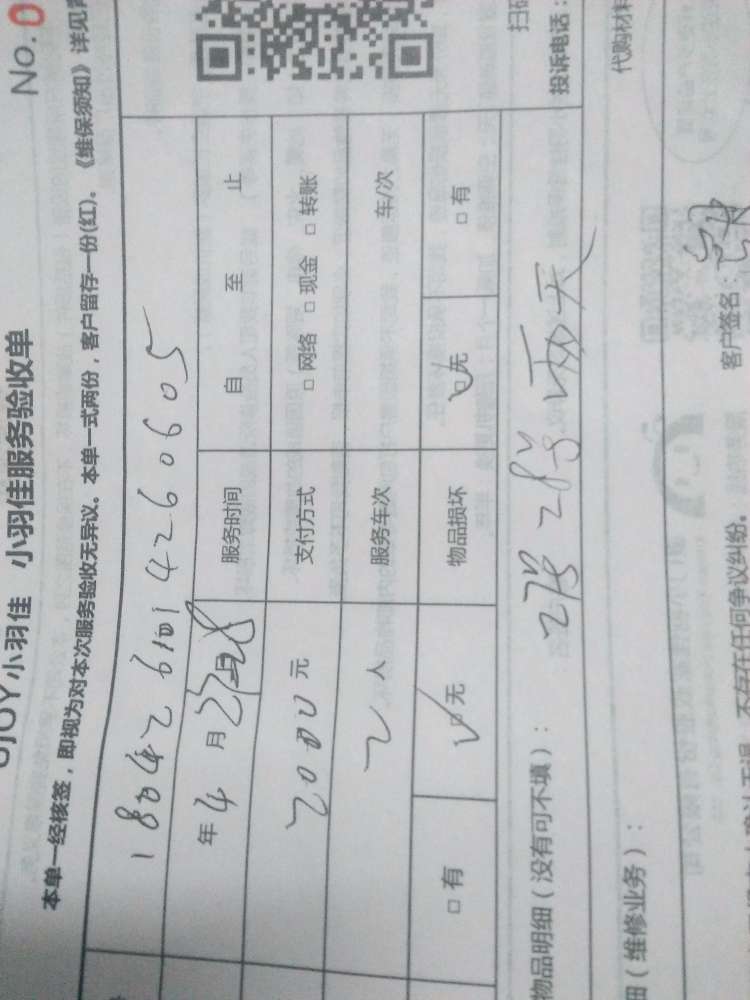 UJOY小羽佳 小羽佳服务验收单 No.0
本单一经核签，即视为对本次服务验收无异议。本单一式两份，客户留存一份(红)。《维保须知》详见背
180426101 4260605
年 4 月 27 28 日 服务时间 自 至 止
2000 元 支付方式 □ 网络 □ 现金 □ 转账
2 人 服务车次 车/次
□ 有 ☑ 无 物品损坏 ☑ 无 □ 有
物品明细（没有可不填）： 27号 28号 两天 扫码
投诉电话：
细（维修业务）： 代购材料
客户签名：
不存在任何争议纠纷。